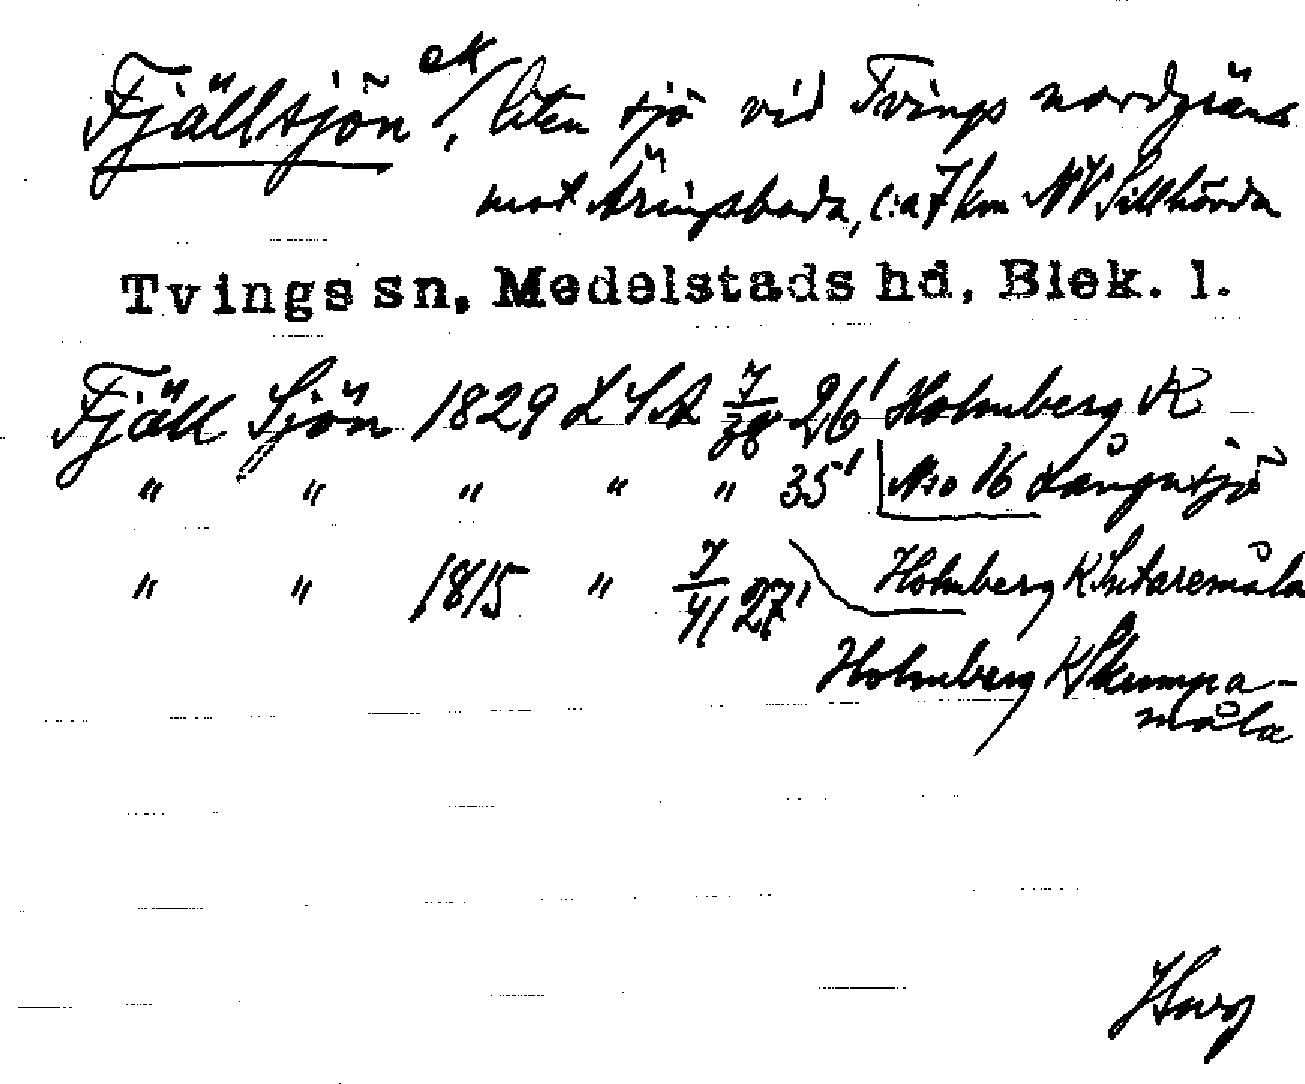 Fjällsjön ek/, liten sjö vid Tvings nordgräns
mot Äringsboda, c:a 7 km NV Sillhövda
Tvings sn, Medelstads hd, Blek. l.
Fjäll Sjön 1829 LSA 7/38 26' Holmberg K
" " " " " 35' No 16 Långasjö
" " 1815 " 7/41 27' Holmberg K Sutaremåla
Holmberg K Skumpa-
måla